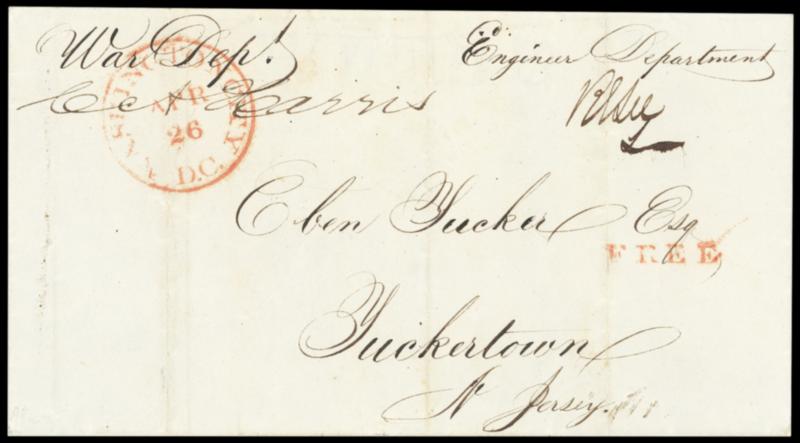 War Dept.
Engineer Department
Harris
RELee
WASHINGTON CITY
APR
26
D.C.
Eben Tucker Esq
FREE
Tuckertown
N Jersey.